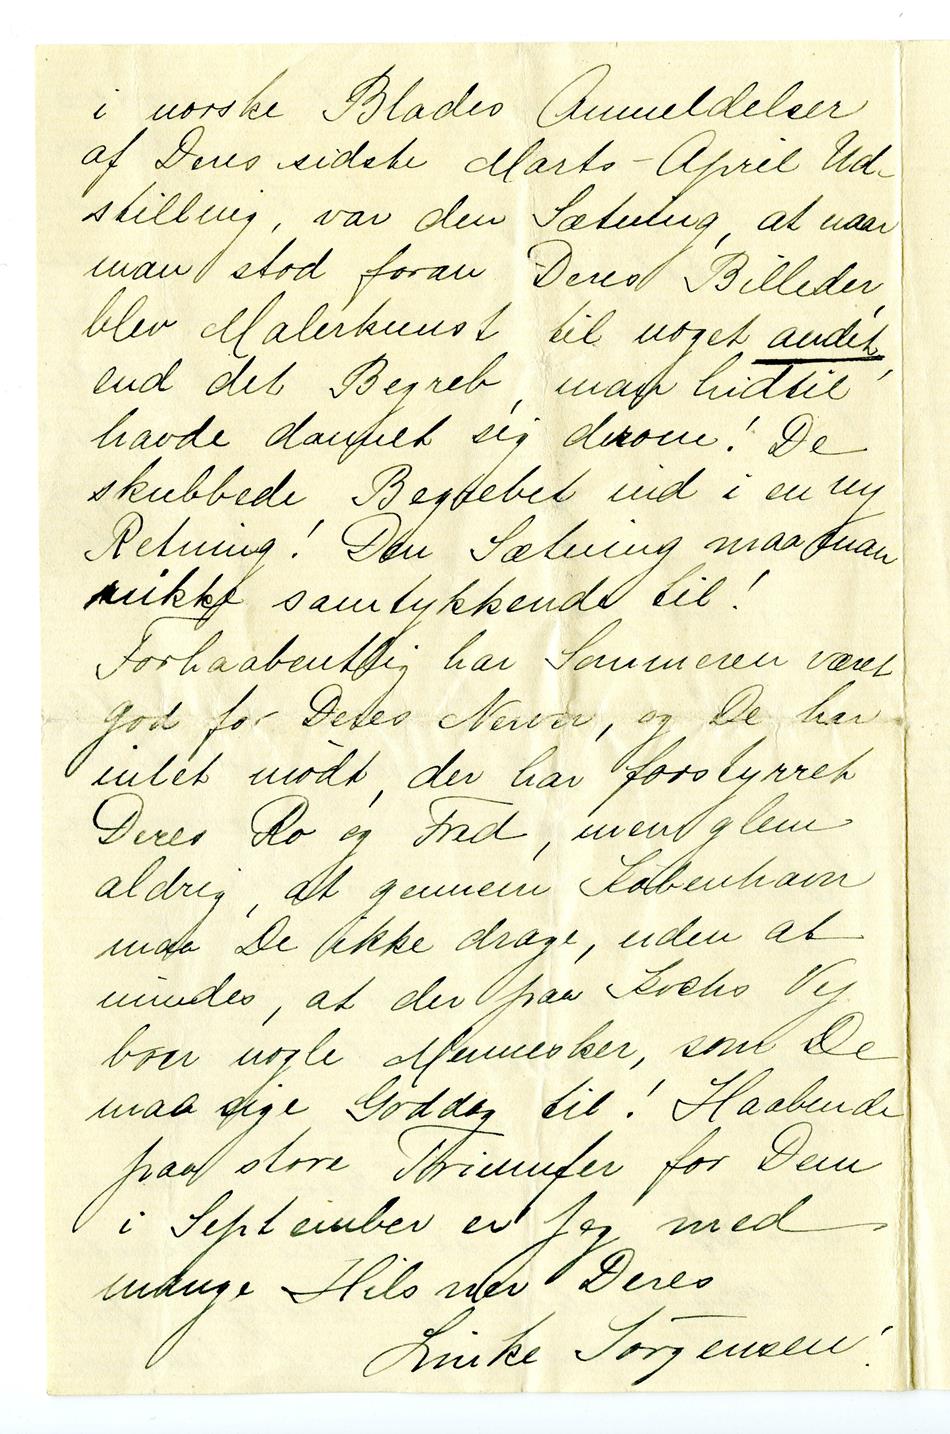 i norske Blades Anmeldelser
af Deres sidste Marts-April Ud-
stilling, var den Sætning, at naar
man stod foran Deres Billeder,
blev Malerkunst til noget andet,
end det Begreb, man hidtil
havde dannet sig derom! De
skubbede Begrebet ind i en ny
Retning! Den Sætning maa man
nikke samtykkende til!
Forhaabentlig har Sommeren været
god for Deres Nerver, og De har
intet mødt, der har forstyrret
Deres Ro og Fred, men glem
aldrig, at gennem København
maa De ikke drage, uden at
mindes, at der paa Kochs Vej
boer nogle Mennesker, som De
maa sige Goddag til! Haabende
paa store Triumfer for Dem
i September er jeg med
mange Hilsner Deres
Linke Jørgensen!